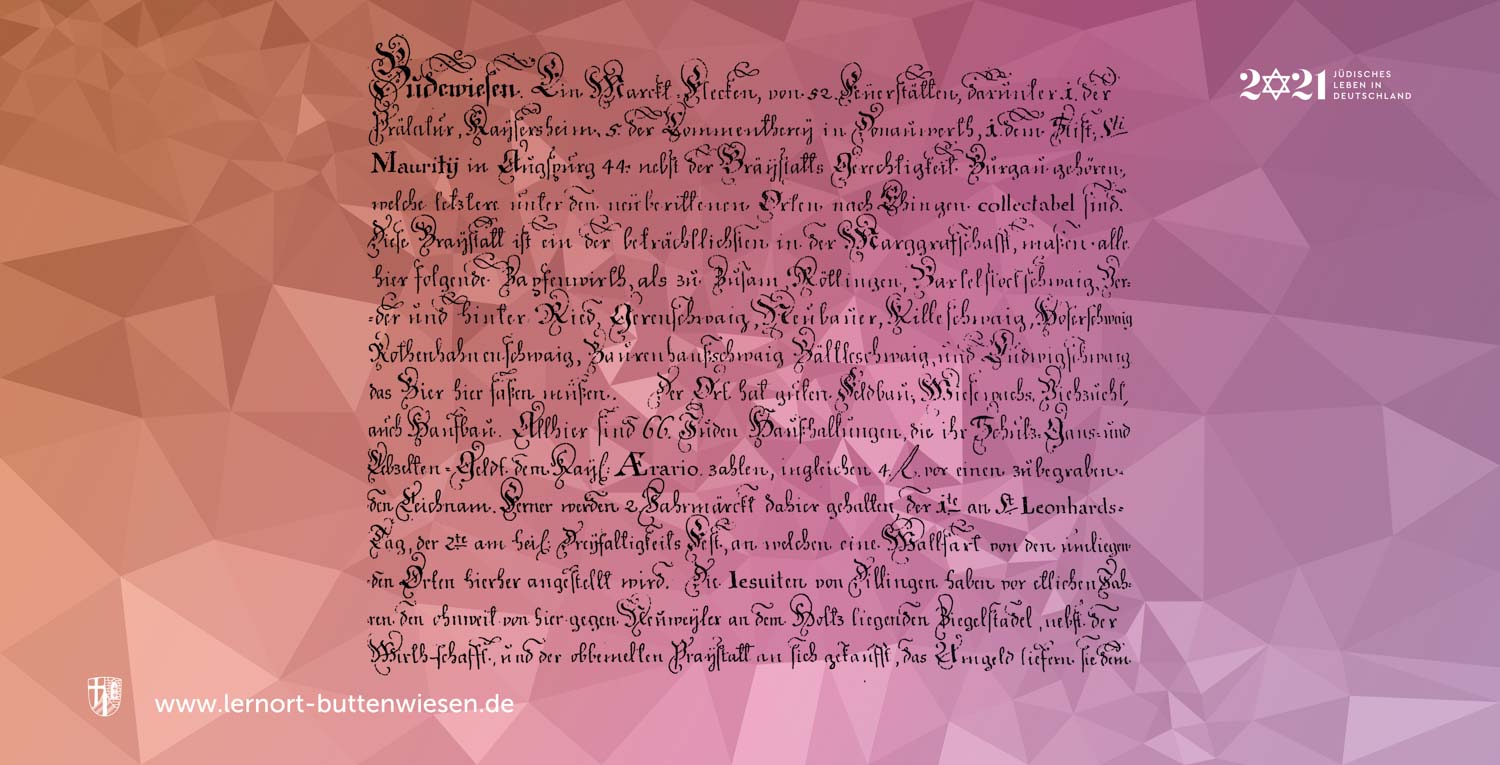 2021 JÜDISCHES
LEBEN IN
DEUTSCHLAND
Budewiesen. Ein Marckt-Flecken, von 52. Feuerstätten, darunter 1. der
Prälatur, Kaysersheim, 5. der Commentherey in Donauwerth, 1. dem Stift, Sti
Mauritij in Augspurg 44. nebst der Bräystatts Gerechtigkeit Burgau gehören,
welche letztere unter den neüberittenen Orten nach Ehingen collectabel sind.
Diese Braÿstatt ist ein der beträchtlichsten in der Marggrafschafft, maßen alle
hier folgende Zapfenwirth, als zu Zusam, Röttingen, Bartelstockschwaig, Vor=
=der und hinter Ried, Gerenschwaig, Neubauer, Killeschwaig, Hoserschwaig
Rothenhahnenschwaig, Baurenhaußschwaig Bättleschwaig, und Ludwigschwaig
das Bier hier faßen müßen. Der Ort hat guten Feldbau, Wieswachs, Viehzucht,
auch Hanfbau. Allhier sind 66. Juden Haußhaltungen, die ihr Schutz-Gans- und
Geldt dem Kaÿsl: Ærario zahlen, ingleichen 4. f. vor einen zubegraben-
den Leichnam. Ferner werden 2. Jahrmärckt dahier gehalten, der 1te an St. Leonhards=
Tag, der 2te am heil: Dreyfaltigkeits Fest, an welchen eine Wallfart von den umliegen-
den Orten hierher angestellt wird. Die Iesuiten von Dillingen haben vor etlichen Jah-
ren den ohnweit von hier gegen Neuweyler an dem Holtz liegenden Ziegelstadel, nebst der
Wirthschafft, und der obbemelten Praystatt an sich gekaufft, das Umgeld liefern sie dem
www.lernort-buttenwiesen.de